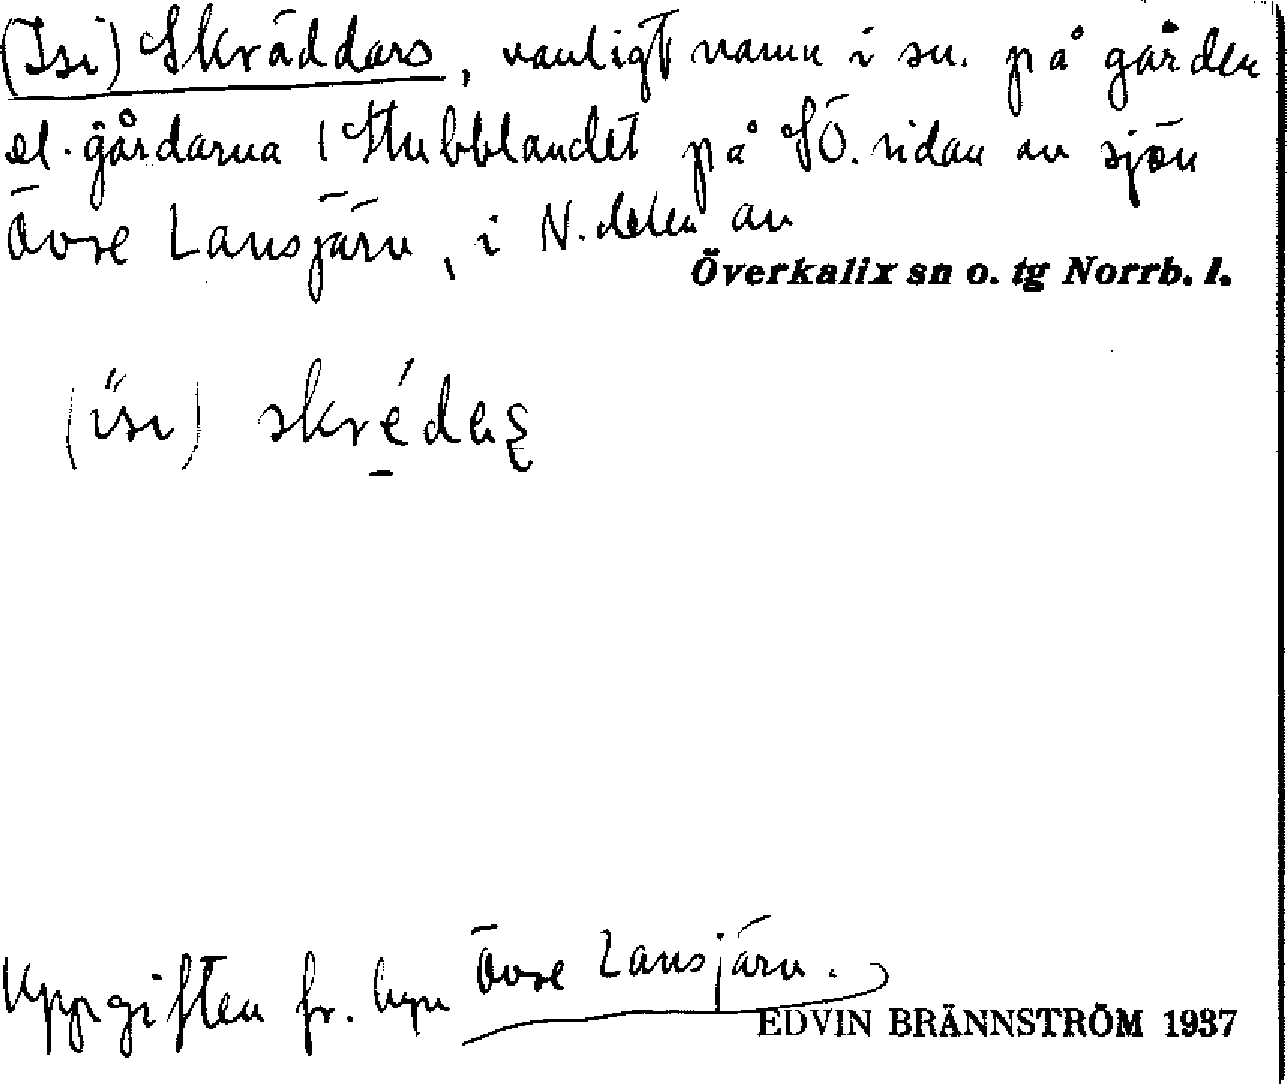 (Isi) Skräddars, vanligt namn i sn. på gården
el. gårdarna i Stubblandet på SÖ. sidan av sjön
Övre Lansjärv, i N. delen av
Överkalix sn o. tg Norrb. l.
(isi) skrédas
Uppgiften fr. byn Övre Lansjärv.
EDVIN BRÄNNSTRÖM 1937